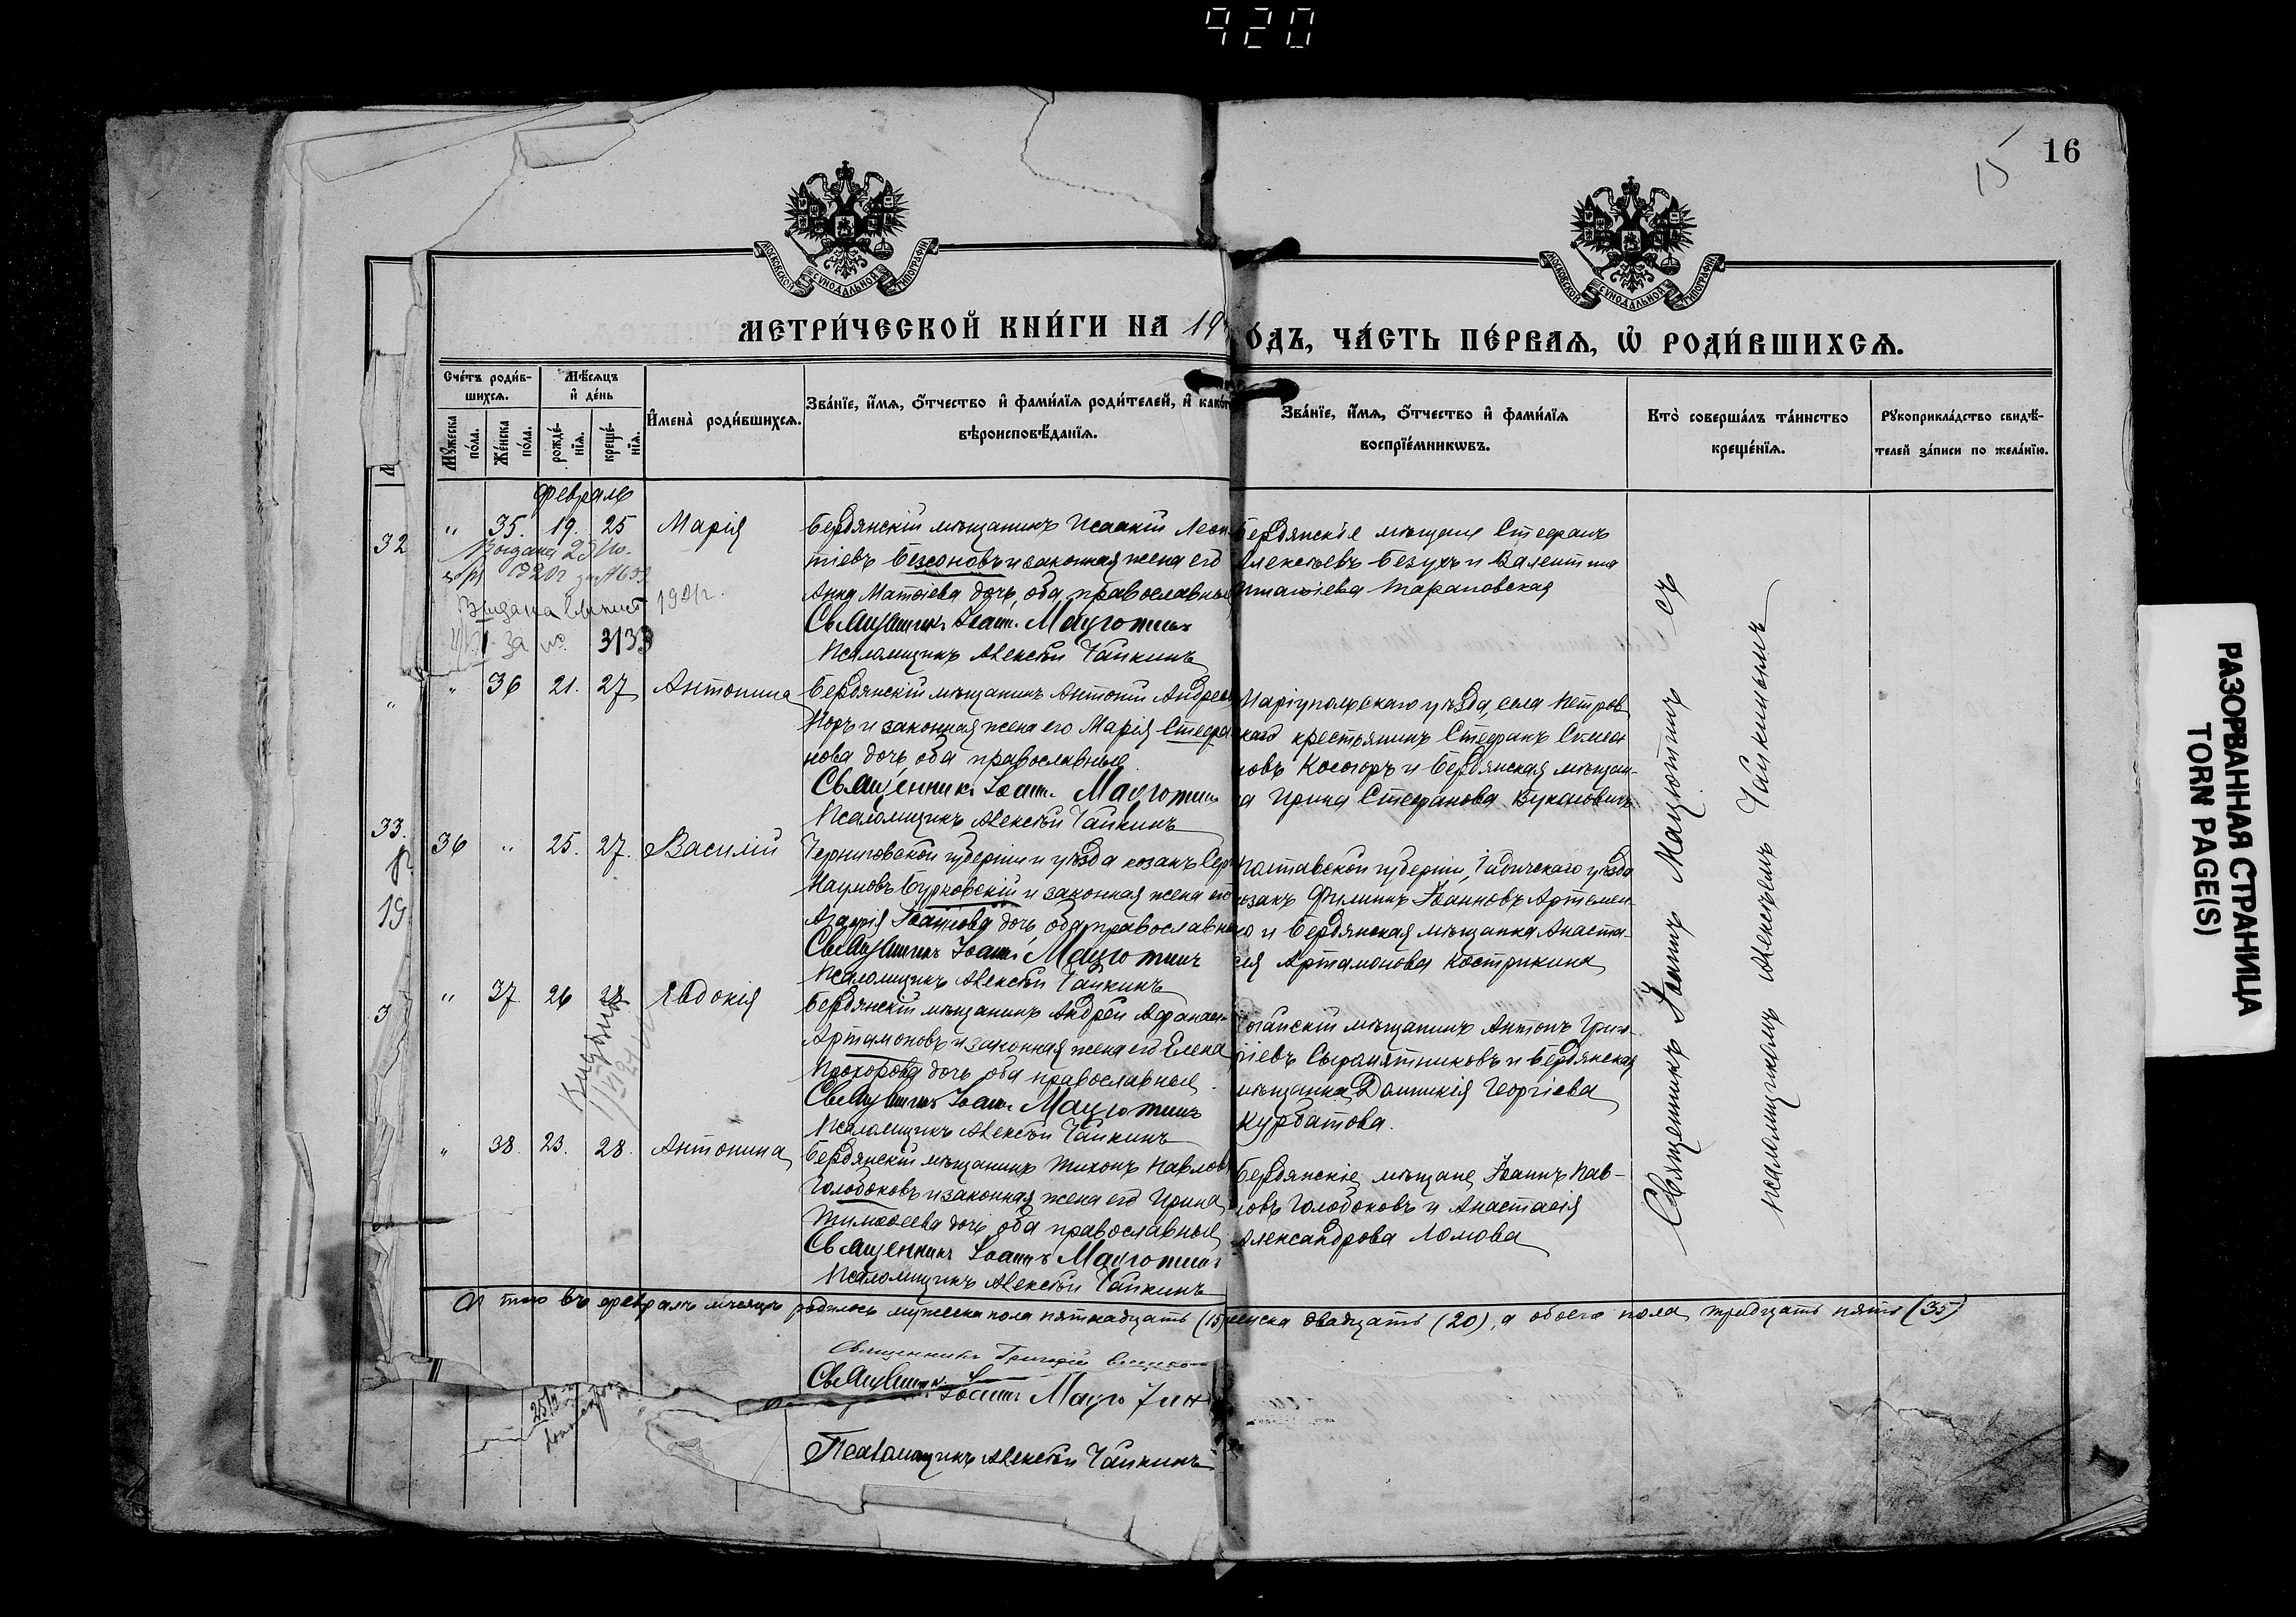 920
16
15
МОСКОВСКОЙ СѴНОДАЛЬНОЙ ТИПОГРАФІИ
МОСКОВСКОЙ СѴНОДАЛЬНОЙ ТИПОГРАФІИ
МЕТРИ́ЧЕСКОЙ КНИ́ГИ НА 19
О́ДЪ, ЧА́СТЬ ПЕ́РВАѦ, Ѡ҆ РОДИ́ВШИХСѦ.
Сче́тъ роди́в-
шихсѧ.
Мꙋ́жеска по́ла.
Же́нска по́ла.
Мѣ́сѧцъ
и҆ де́нь
рожде́-
нїѧ.
креще́-
нїѧ.
И҆мена̀ роди́вшихсѧ.
Зва́нїе, и҆́мѧ, ѻ҆́тчество и҆ фами́лїѧ роди́телей, и҆ како́г
вѣроисповѣ́данїѧ.
Зва́нїе, и҆́мѧ, ѻ҆́тчество и҆ фами́лїѧ
воспрїе́мникѡвъ.
Кто̀ соверша́лъ та́инство
креще́нїѧ.
Рꙋкоприкла́дство свидѣ́-
телей за́писи по жела́нїю.
февраль
32
" 35. 19. 25 Марія
Бердянскій мѣщанинъ Исаакій Леон
тіевъ Безсоновъ и законная жена его
Анна Матѳіева дочь, оба православные
Священникъ Іоаннъ Мацютинъ
Псаломщикъ Алексѣй Чайкинъ
3133
Бердянскіе мѣщане Стефанъ
Алексѣевъ Безухъ и Валентина
Игнатіева Тарановская
" 36 21. 27 Антонина
Бердянскій мѣщанинъ Антоній Андреев
Норъ и законная жена его Марія Стефа
нова дочь, оба православные
Священникъ Іоаннъ Мацютинъ
Псаломщикъ Алексѣй Чайкинъ
Маріупольскаго уѣзда, села Петров
скаго крестьянинъ Стефанъ Симео
новъ Косогоръ и Бердянская мѣщан-
ка Ирина Стефанова Вукаловичъ
33.
19
36 " 25. 27. Василій
Черниговской губерніи и уѣзда козакъ Сер
Наумовъ Бурковскій и законная жена его
дочь, оба православные
Священникъ Іоаннъ Мацютинъ
Псаломщикъ Алексѣй Чайкинъ
Полтавской губерніи, Гадячскаго уѣзда
козакъ Филиппъ Іоанновъ Артемен-
ко и Бердянская мѣщанка Анаста-
сія Артамонова Кострикина
3
" 37 26 28. Евдокія
Бердянскій мѣщанинъ Андрей Афанасі-
Артамоновъ и законная жена его Елена
Прохорова дочь, оба православные.
Священникъ Іоаннъ Мацютинъ
Псаломщикъ Алексѣй Чайкинъ
Ногайскій мѣщанинъ Антонъ Григо-
ріевъ Сыромятниковъ и Бердянская
мѣщанка Домникія Георгіева
Курбатова.
" 38. 23. 28. Антонина
Бердянскій мѣщанинъ Тихонъ Павлов
Голобоковъ и законная жена его Ирина
Тимоѳеева дочь, оба православные
Священникъ Іоаннъ Мацютинъ
Псаломщикъ Алексѣй Чайкинъ
Бердянскіе мѣщане Іоаннъ Пав-
ловъ Голобоковъ и Анастасія
Александрова Ломова
Священникъ Іоаннъ Мацютинъ съ
псаломщикомъ Алексѣемъ Чайкинымъ
Итого въ февралѣ мѣсяцѣ родилось мужеска пола пятнадцать (15) женска двадцать (20), а обоего пола тридцать пять (35)
Священникъ Григорій
Священникъ Іоаннъ Мацютин
Псаломщикъ Алексѣй Чайкинъ
РАЗОРВАННАЯ СТРАНИЦА
TORN PAGE(S)